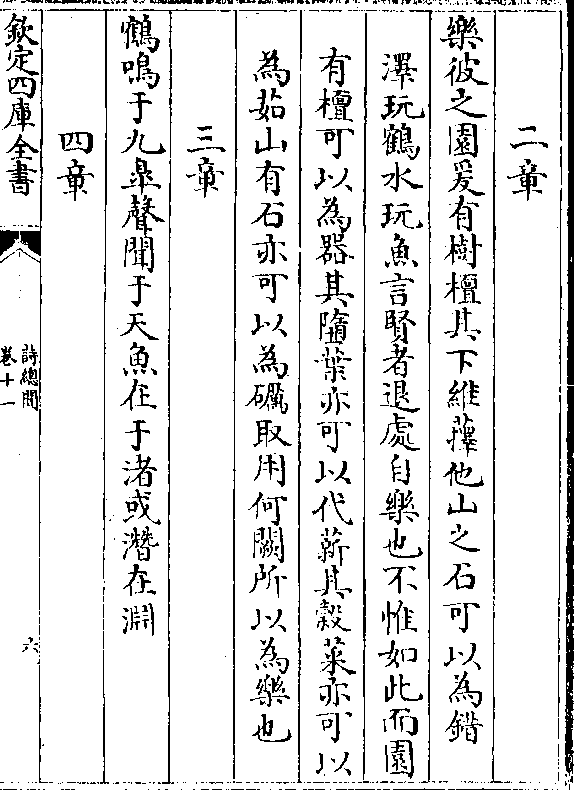 二章
樂彼之園爰有樹檀其下維蘀他山之石可以為錯
澤玩鶴水玩魚言賢者退處自樂也不惟如此而園
有檀可以為器其隨葉亦可以代薪其穀菜亦可以
為茹山有石亦可以為礪取用何闕所以為樂也
三章
鶴鳴于九臯聲聞于天魚在于渚或潛在淵
四章
欽定四庫全書
詩總聞
卷十一
六